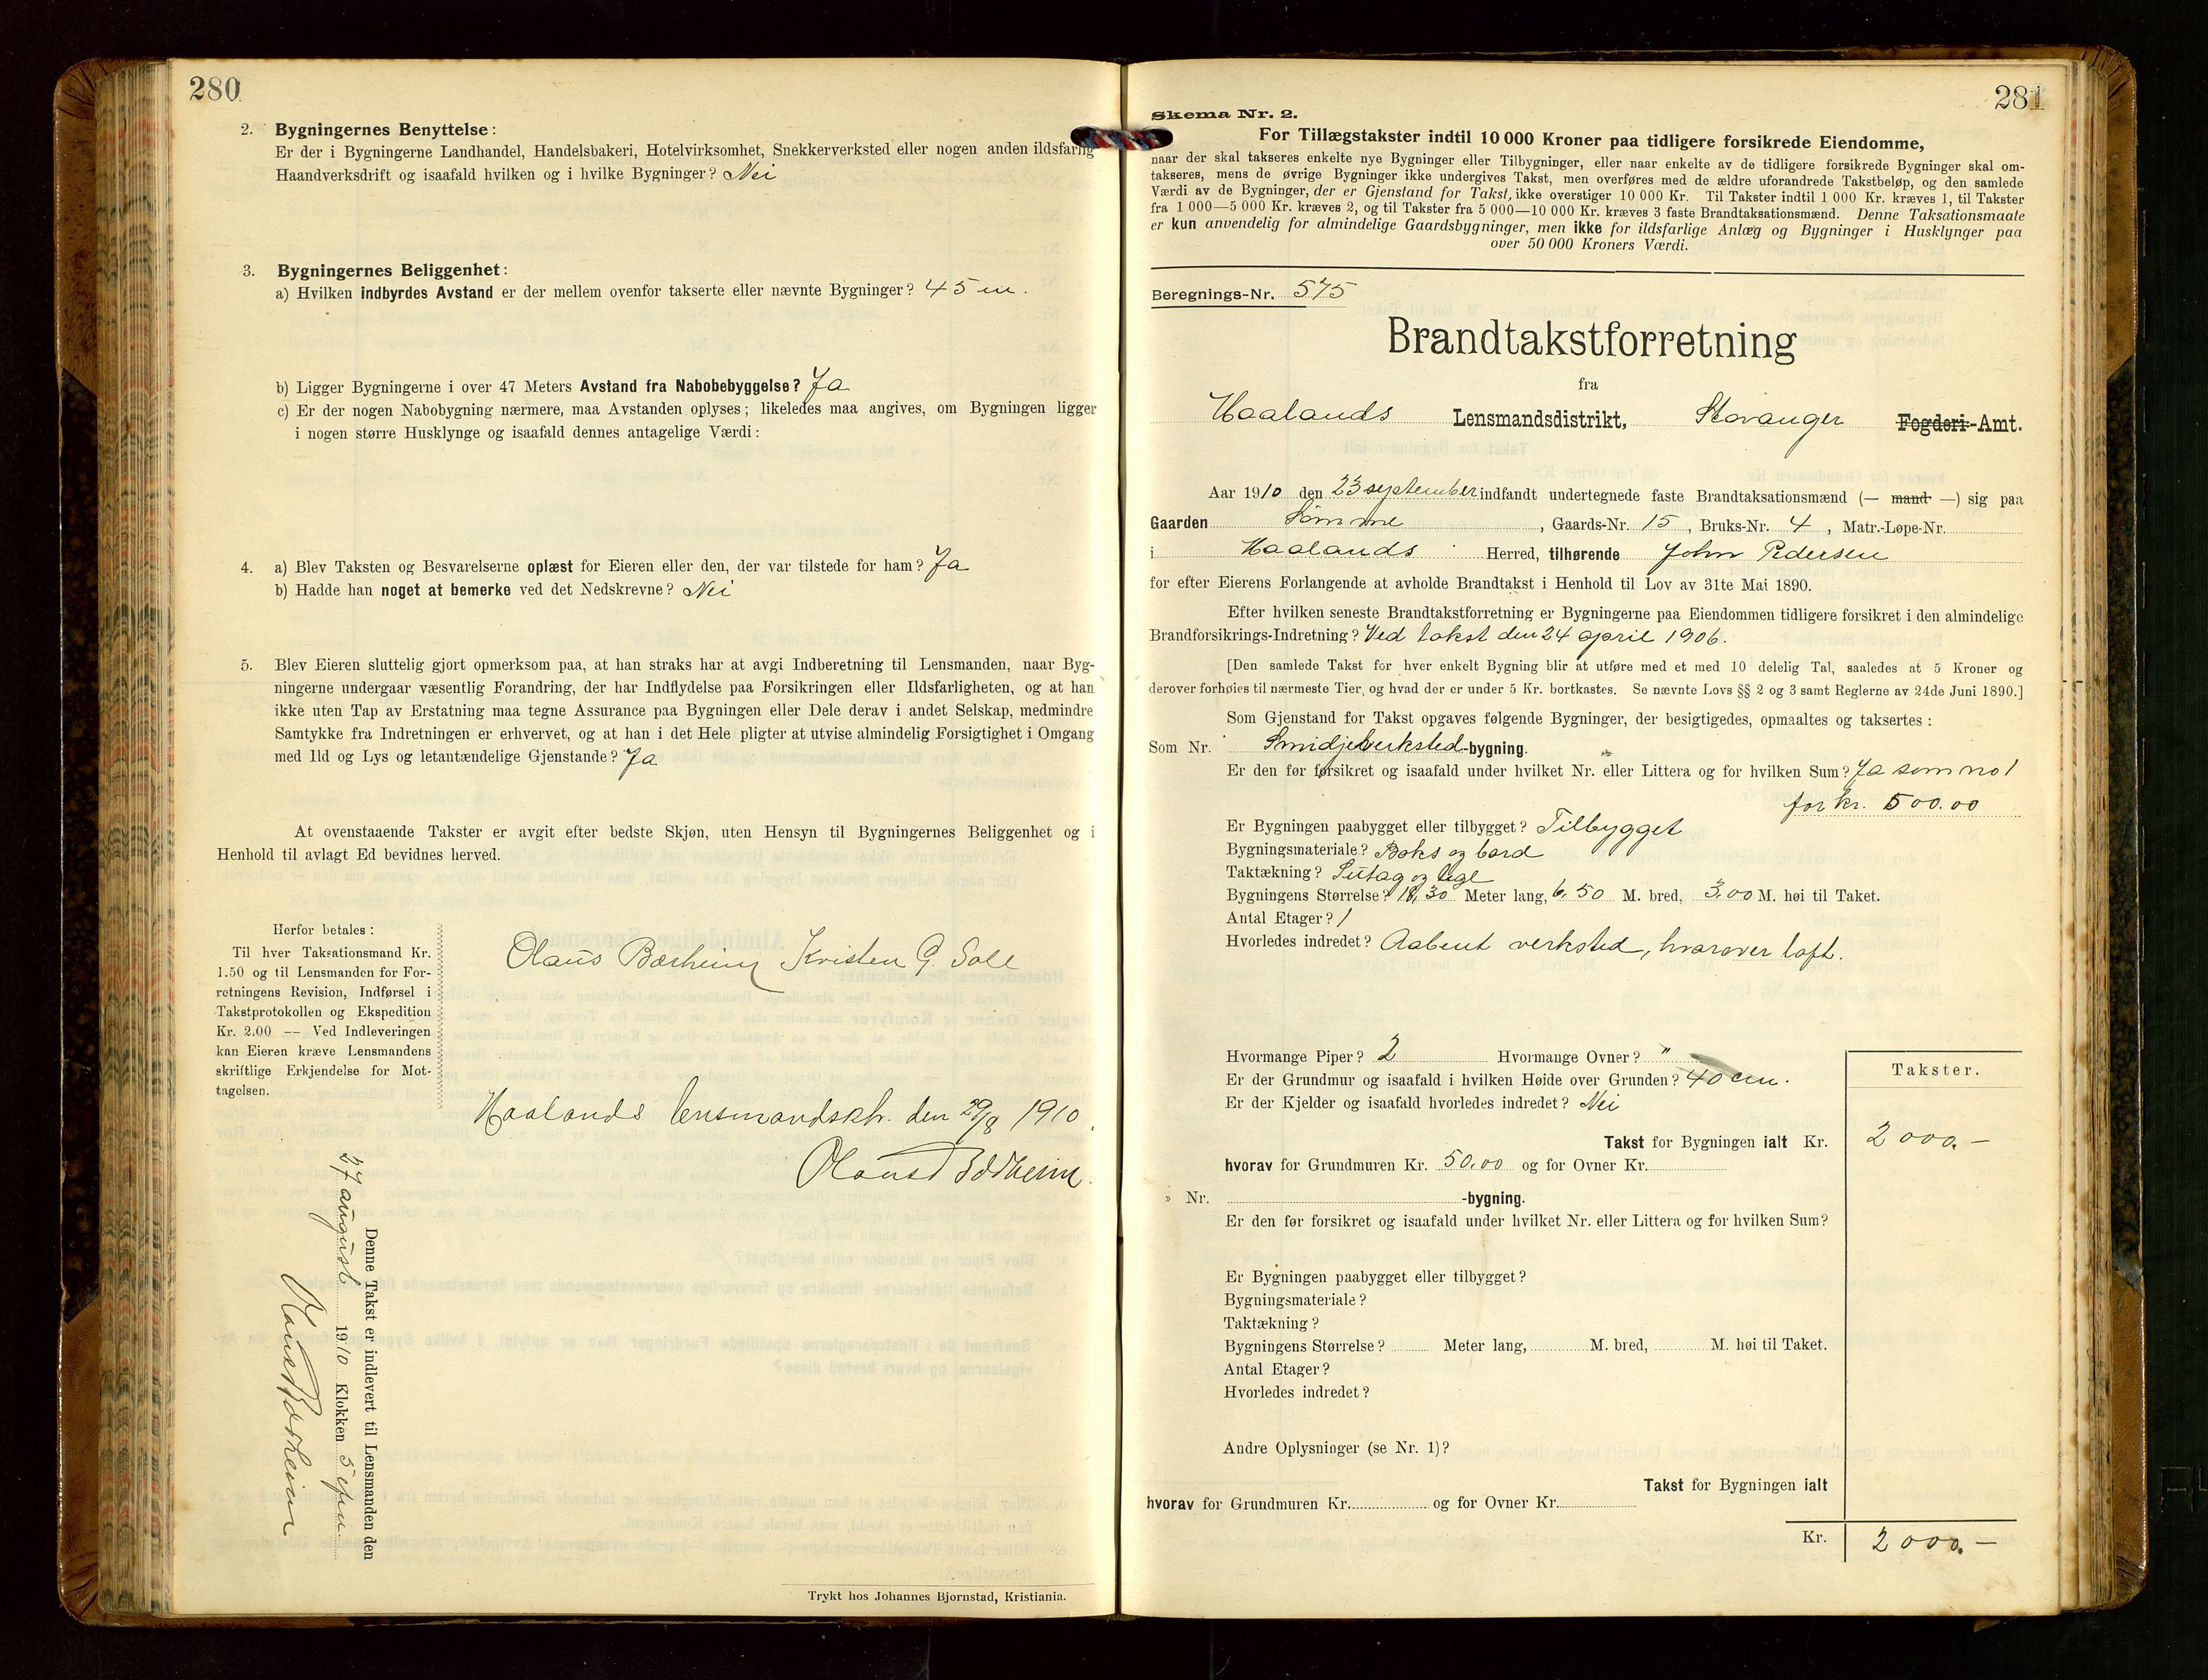 280
2. Bygningernes Benyttelse:
Er der i Bygningerne Landhandel, Handelsbakeri, Hotelvirksomhet, Snekkerverksted eller nogen anden ildsfarlig
Haandverksdrift og isaafald hvilken og i hvilke Bygninger? Nei
3. Bygningernes Beliggenhet:
a) Hvilken indbyrdes Avstand er der mellem ovenfor takserte eller nævnte Bygninger? 45 m.
b) Ligger Bygningerne i over 47 Meters Avstand fra Nabobebyggelse? Ja
c) Er der nogen Nabobygning nærmere, maa Avstanden oplyses; likeledes maa angives, om Bygningen ligger
i nogen større Husklynge og isaafald dennes antagelige Værdi:
4. a) Blev Taksten og Besvarelserne oplæst for Eieren eller den, der var tilstede for ham? Ja
b) Hadde han noget at bemerke ved det Nedskrevne? Nei
5. Blev Eieren sluttelig gjort opmerksom paa, at han straks har at avgi Indberetning til Lensmanden, naar Byg-
ningerne undergaar væsentlig Forandring, der har Indflydelse paa Forsikringen eller Ildsfarligheten, og at han
ikke uten Tap av Erstatning maa tegne Assurance paa Bygningen eller Dele derav i andet Selskap, medmindre
Samtykke fra Indretningen er erhvervet, og at han i det Hele pligter at utvise almindelig Forsigtighet i Omgang
med Ild og Lys og letantændelige Gjenstande? Ja
At ovenstaaende Takster er avgit efter bedste Skjøn, uten Hensyn til Bygningernes Beliggenhet og i
Henhold til avlagt Ed bevidnes herved.
Herfor betales:
Til hver Taksationsmand Kr.
1.50 og til Lensmanden for For-
retningens Revision, Indførsel i
Takstprotokollen og Ekspedition
Kr. 2.00 — Ved Indleveringen
kan Eieren kræve Lensmandens
skriftlige Erkjendelse for Mot-
tagelsen.
Olaus Børheim Kristen G. Sole
Haalands lensmandsktr. den 29/8 1910.
Denne Takst er indlevert til Lensmanden den
27 august 1910 Klokken 5 efm.
Trykt hos Johannes Bjørnstad, Kristiania.
281
Skema Nr. 2.
For Tillægstakster indtil 10 000 Kroner paa tidligere forsikrede Eiendomme,
naar der skal takseres enkelte nye Bygninger eller Tilbygninger, eller naar enkelte av de tidligere forsikrede Bygninger skal om-
takseres, mens de øvrige Bygninger ikke undergives Takst, men overføres med de ældre uforandrede Takstbeløp, og den samlede
Værdi av de Bygninger, der er Gjenstand for Takst, ikke overstiger 10 000 Kr. Til Takster indtil 1 000 Kr. kræves 1, til Takster
fra 1 000—5 000 Kr. kræves 2, og til Takster fra 5 000—10 000 Kr. kræves 3 faste Brandtaksationsmænd. Denne Taksationsmaate
er kun anvendelig for almindelige Gaardsbygninger, men ikke for ildsfarlige Anlæg og Bygninger i Husklynger paa
over 50 000 Kroners Værdi.
Beregnings-Nr. 575
Brandtakstforretning
fra
Haalands Lensmandsdistrikt, Stavanger Fogderi-Amt.
Aar 1910 den 23 september indfandt undertegnede faste Brandtaksationsmænd (— mand —) sig paa
Gaarden Sømme, Gaards-Nr. 15, Bruks-Nr. 4, Matr.-Løpe-Nr.
i Haalands Herred, tilhørende John Pedersen
for efter Eierens Forlangende at avholde Brandtakst i Henhold til Lov av 31te Mai 1890.
Efter hvilken seneste Brandtakstforretning er Bygningerne paa Eiendommen tidligere forsikret i den almindelige
Brandforsikrings-Indretning? Ved takst den 24 april 1906.
[Den samlede Takst for hver enkelt Bygning blir at utføre med et med 10 delelig Tal, saaledes at 5 Kroner og
derover forhøies til nærmeste Tier, og hvad der er under 5 Kr. bortkastes. Se nævnte Lovs §§ 2 og 3 samt Reglerne av 24de Juni 1890.]
Som Gjenstand for Takst opgaves følgende Bygninger, der besigtigedes, opmaaltes og taksertes:
Som Nr. Smidjeverksted-bygning.
Er den før forsikret og isaafald under hvilket Nr. eller Littera og for hvilken Sum? Ja som no 1
for kr. 500.00
Er Bygningen paabygget eller tilbygget? Tilbygget
Bygningsmateriale? Boks og bord
Taktækning? Sutag og tegl
Bygningens Størrelse? 18,30 Meter lang, 6,50 M. bred, 3,00 M. høi til Taket.
Antal Etager? 1
Hvorledes indredet? Aabent verksted, hvorover loft.
Hvormange Piper? 2 Hvormange Ovner? "
Er der Grundmur og isaafald i hvilken Høide over Grunden? 40 cm.
Er der Kjelder og isaafald hvorledes indredet? Nei
Takster.
Takst for Bygningen ialt Kr. 2 000.—
hvorav for Grundmuren Kr. 50,00 og for Ovner Kr.
» Nr. -bygning.
Er den før forsikret og isaafald under hvilket Nr. eller Littera og for hvilken Sum?
Er Bygningen paabygget eller tilbygget?
Bygningsmateriale?
Taktækning?
Bygningens Størrelse? Meter lang, M. bred, M. høi til Taket.
Antal Etager?
Hvorledes indredet?
Andre Oplysninger (se Nr. 1)?
Takst for Bygningen ialt
hvorav for Grundmuren Kr. og for Ovner Kr.
Kr. 2 000.—